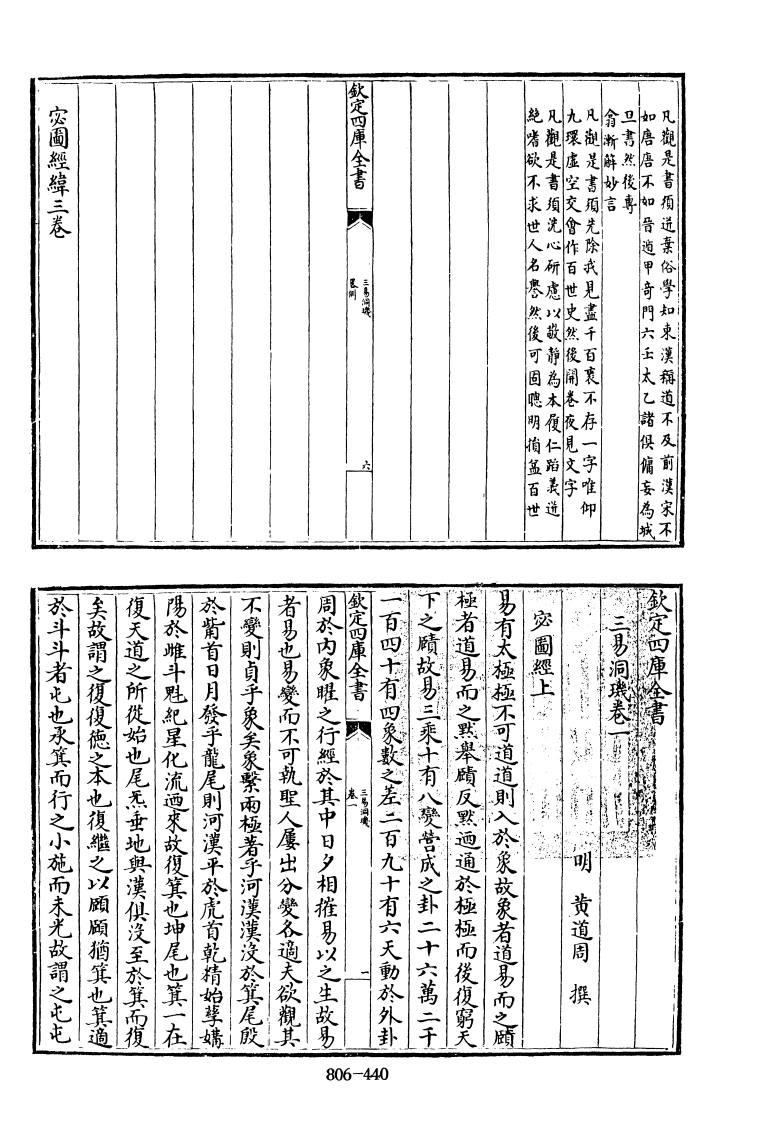 凡觀是書須迸棄俗學知東漢稱道不及前漢宋不
如唐唐不如晉遁甲奇門六壬太乙諸俱傭妄為城
旦書然後專
翁漸解妙言
凡觀是書須先除我見盡千百裏不存一字唯仰
九環虛空交會作百世史然後開卷夜見文字
凡觀是書須洗心研慮以敬靜為本履仁蹈義迸
絶嗜欲不求世人名譽然後可固聰明損益百世
欽定四庫全書
三易洞璣
畧例
六
宓圖經緯三卷
欽定四庫全書
三易洞璣卷一
明 黄道周 撰
宓圖經上
易有太極極不可道道則入於象故象者道易而之賾
極者道易而之黙舉賾反黙迺通於極極而後復窮天
下之賾故易三乘十有八變營成之卦二十六萬二千
一百四十有四象數之差二百九十有六天動於外卦
周於内象曜之行經於其中日夕相摧易以之生故易
欽定四庫全書
三易洞璣
卷一
一
者易也易變而不可執聖人屢出分變各適夫欲觀其
不變則貞乎象矣象繫兩極著乎河漢漢没於箕尾殷
於觜首日月發乎龍尾則河漢平於虎首乾精始孳媾
陽於雌斗魁紀星化流迺來故復箕也坤尾也箕一在
復天道之所從始也尾炁垂地與漢俱没至於箕而復
矣故謂之復復德之本也復繼之以頥頥猶箕也箕適
於斗斗者屯也承箕而行之小施而未光故謂之屯屯
806-440